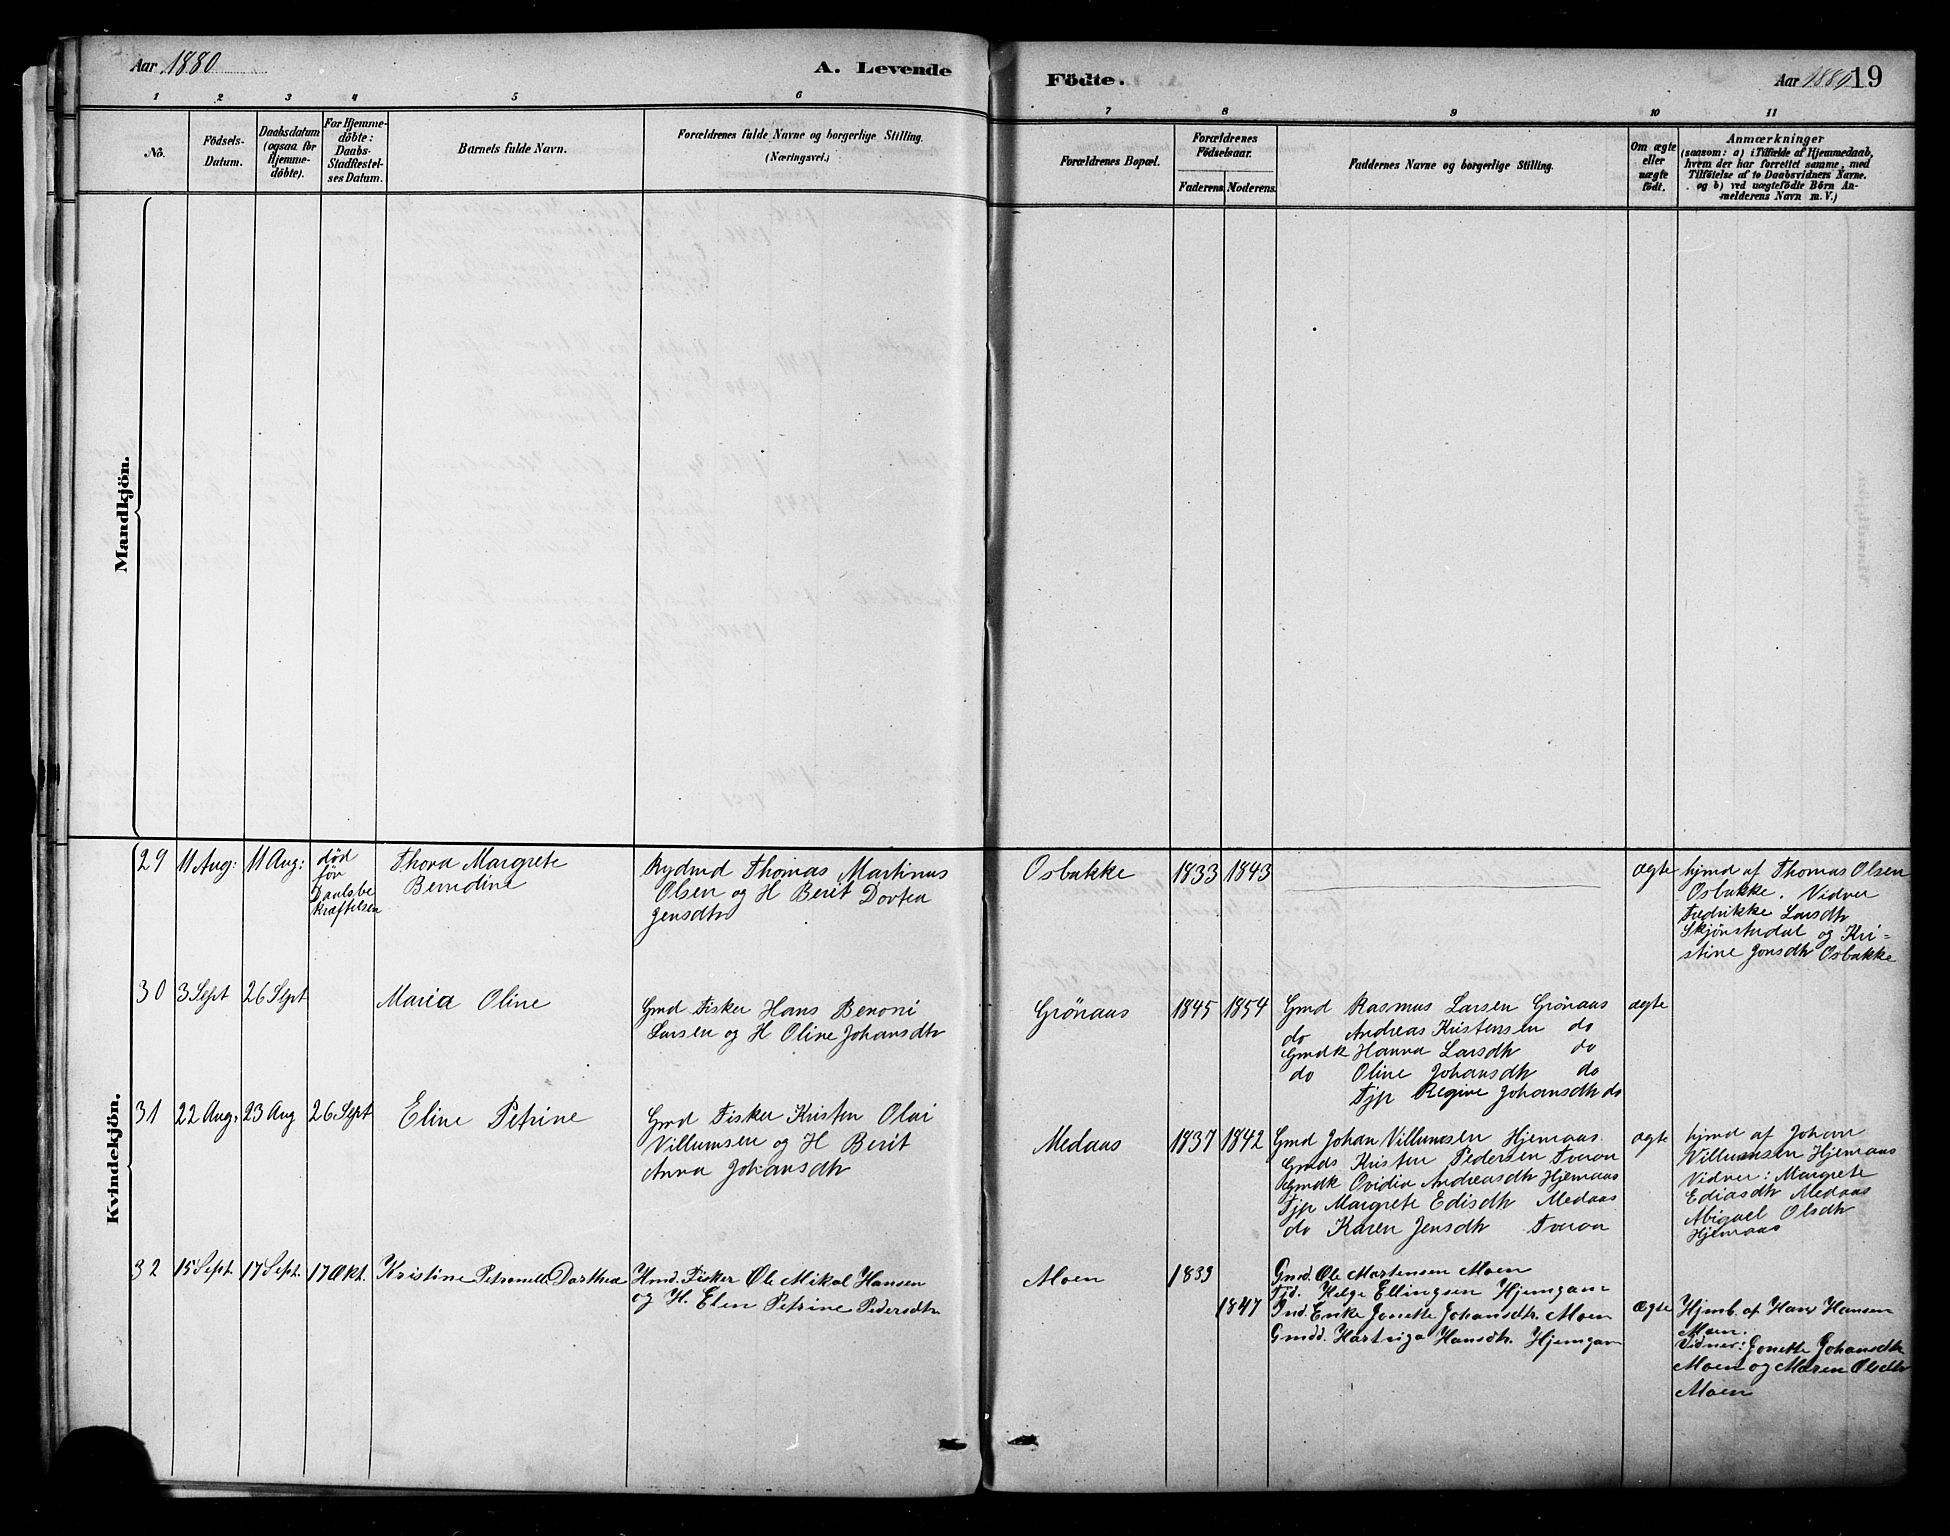 Aar 1880
A. Levende
Födte.
Aar 1880 19
1 2 3 4 5 6 7 8 9 10 11
No.
Födsels-
Datum.
Daabsdatum
(ogsaa for
Hjemme-
döbte).
For Hjemme-
döbte:
Daabs-
Stadfæstel-
ses Datum.
Barnets fulde Navn.
Forældrenes fulde Navne og borgerlige Stilling.
(Næringsvei.)
Forældrenes Bopæl.
Forældrenes
Födselsaar.
Faderens. Moderens.
Faddernes Navne og borgerlige Stilling.
Om ægte
eller
uægte
födt.
Anmærkninger
(saasom: a) i Tilfælde af Hjemmedaab,
hvem der har forrettet samme, med
Tilföielse af to Daabsvidners Navne.
og b) ved uægtefödte Börn An-
melderens Navn m. V.)
Mandkjön.
Kvindekjön.
29 11 Aug: 11 Aug:
død
før
Daabsbe
kræftelsen
Thora Margrete
Berndine
Rydmd Thomas Martinus
Olsen og H Berit Dortea
Jensdtr
Osbakke 1833 1843
ægte
hjmd af Thomas Olsen
Osbakke. Vidner
Fredrikke Larsdtr
Skjønstadal og Kri-
stine Jonsdtr Osbakke
30 3 Sept 26 Sept
Maria Oline
Gmd Fisker Hans Benoni
Larsen og H Oline Johansdtr
Grönaas 1845 1854
Gmd Rasmus Larsen Grönaas
do Andreas Kristensen do
Gmdk Hanna Larsdtr do
do Oline Johansdtr do
Tjp Regine Johansdtr do
ægte
31 22 Aug: 23 Aug 26 Sept
Eline Petrine
Gmd Fisker Kristen Olai
Villumsen og H Berit
Anna Johansdtr
Medaas 1837 1842
Gmd Johan Villumsen Hjemaas
Gmds Kristen Pedersen Tveraa
Gmdk Ovidia Andreasdtr Hjemaas
Tjp Margrete Edisdtr Medaas
do Karen Jensdtr Tveraa
ægte
hjmd af Johan
Villumsen Hjemaas
Vidner: Margrete
Ediasdtr Medaas
Abigael Olsdtr
Hjemaas
32 15 Sept. 17 Sept. 17 Okt.
Kristine Petronelle Dorthea
Hmd. Fisker Ole Mikal Hansen
og H. Elen Petrine Pedersdtr
Moen 1833
1847
Gmd. Ole Mortensen Moen
Tjd. Helge Ellingsen Hjemgam
Ind. Enke Jonette Johansdtr. Moen
Gmdd. Hartviga Hansdtr. Hjemgam
Ægte
Hjmb. af Hans Hansen
Moen.
Vidner: Jonette Johansdtr
Moen og Maren Olsdtr
Moen